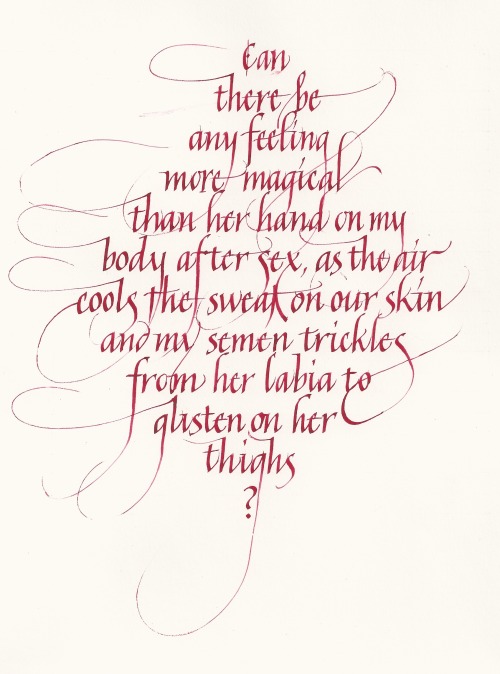 Can
there be
any feeling
more magical
than her hand on my
body after sex, as the air
cools the sweat on our skin
and my semen trickles
from her labia to
glisten on her
thighs
?